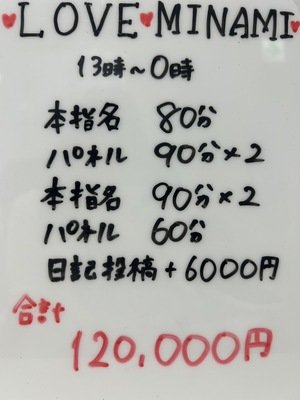 ♥LOVE♥MINAMI♥
13時~0時
本指名 80分
パネル 90分×2
本指名 90分×2
パネル 60分
日記投稿+6000円
合計
120,000円